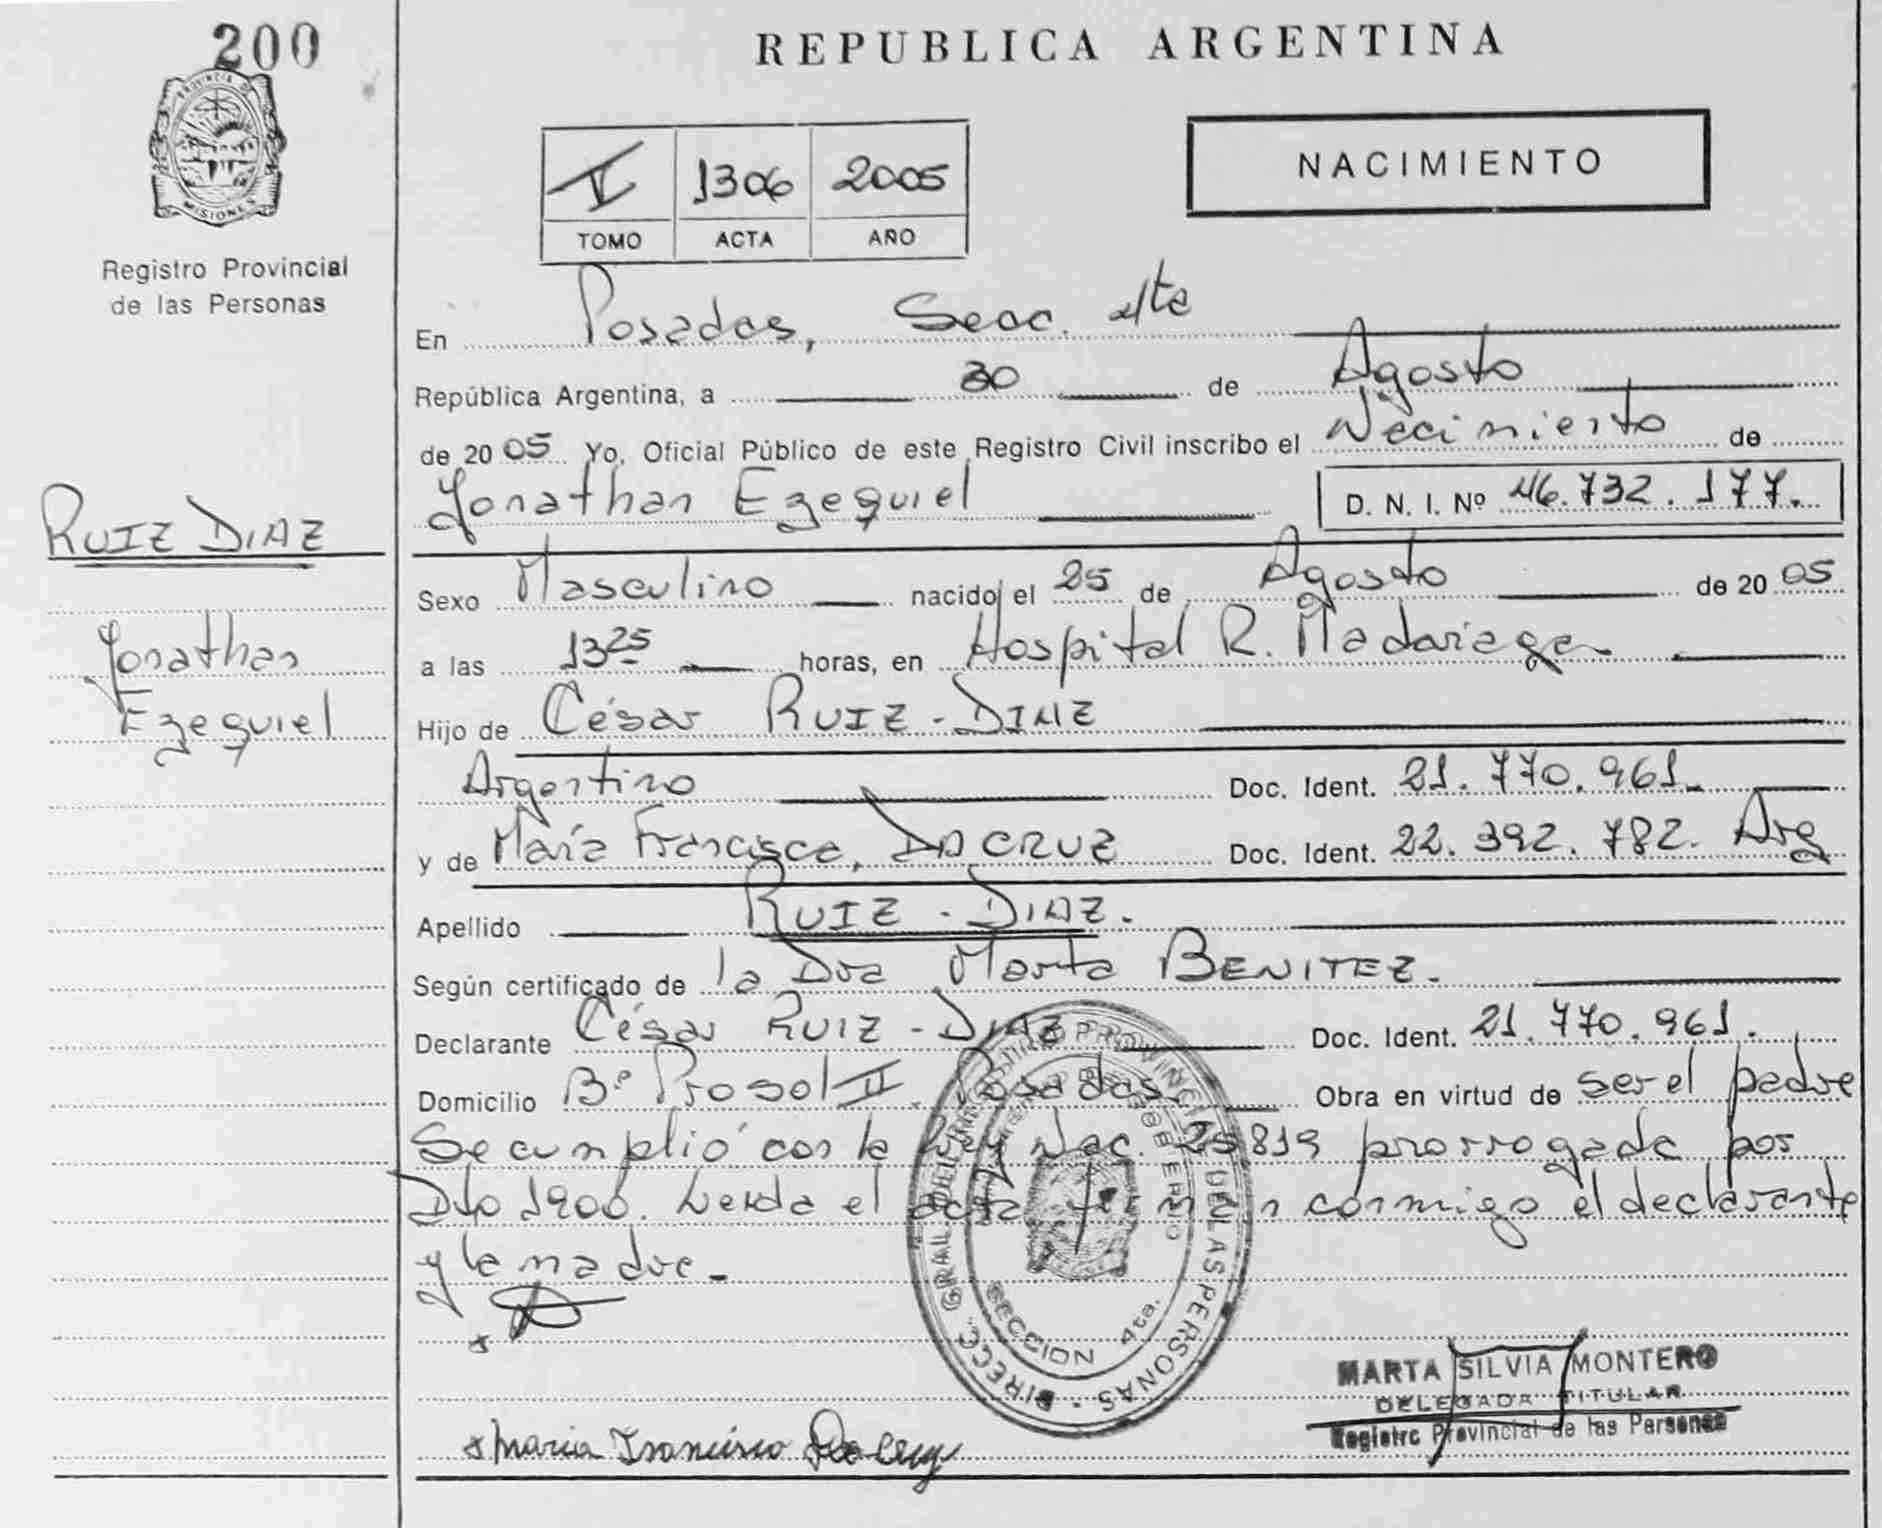 200
PROVINCIA DE
MISIONES
Registro Provincial
de las Personas
RUIZ DIAZ
Jonathan
Ezequiel
REPUBLICA ARGENTINA
1306 2005
TOMO ACTA AÑO
NACIMIENTO
En Posadas, Secc. 4ta
República Argentina, a 30 de Agosto
de 2005 Yo, Oficial Público de este Registro Civil inscribo el Nacimiento de
Jonathan Ezequiel D. N. I. Nº 46.732.177.
Sexo Masculino nacido el 25 de Agosto de 2005
a las 13 25 horas, en Hospital R. Madariaga
Hijo de César RUIZ-DIAZ
Argentino Doc. Ident. 21.770.961
y de María Francisca, DA CRUZ Doc. Ident. 22.392.782. Arg
Apellido RUIZ-DIAZ.
Según certificado de la Dra Marta BENITEZ.
Declarante César RUIZ-DIAZ Doc. Ident. 21.770.961.
Domicilio Bº Prosol II. Posadas. Obra en virtud de ser el padre
Se cumplió con la Ley Nac. 25.819 prorrogada por
Dto 1900. Leída el acta firman conmigo el declarante
y la madre.
DIRECC. GRAL. DEL REGISTRO PROVINCIAL DE LAS PERSONAS
SECCION 4ta.
Maria Francisca Da Cruz
MARTA SILVIA MONTERO
DELEGADA TITULAR
Registro Provincial de las Personas